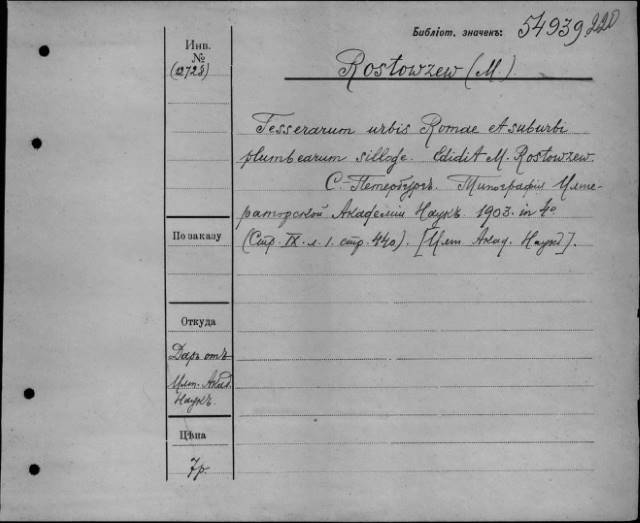 Библіот. значекъ: 54939 220
Инв.
№
(2728)
Rostowzew (M.)
Tesserarum urbis Romae et suburbi
plumbearum silloge. Edidit M. Rostowzew.
С.-Петербургъ. Типографія Импе-
раторской Академіи Наукъ. 1903. in 4o
(Стр. IX. л. 1. стр. 440). [Имп. Акад. Наукъ].
По заказу
Откуда
Даръ отъ
Имп. Акад.
Наукъ.
Цѣна
7р.